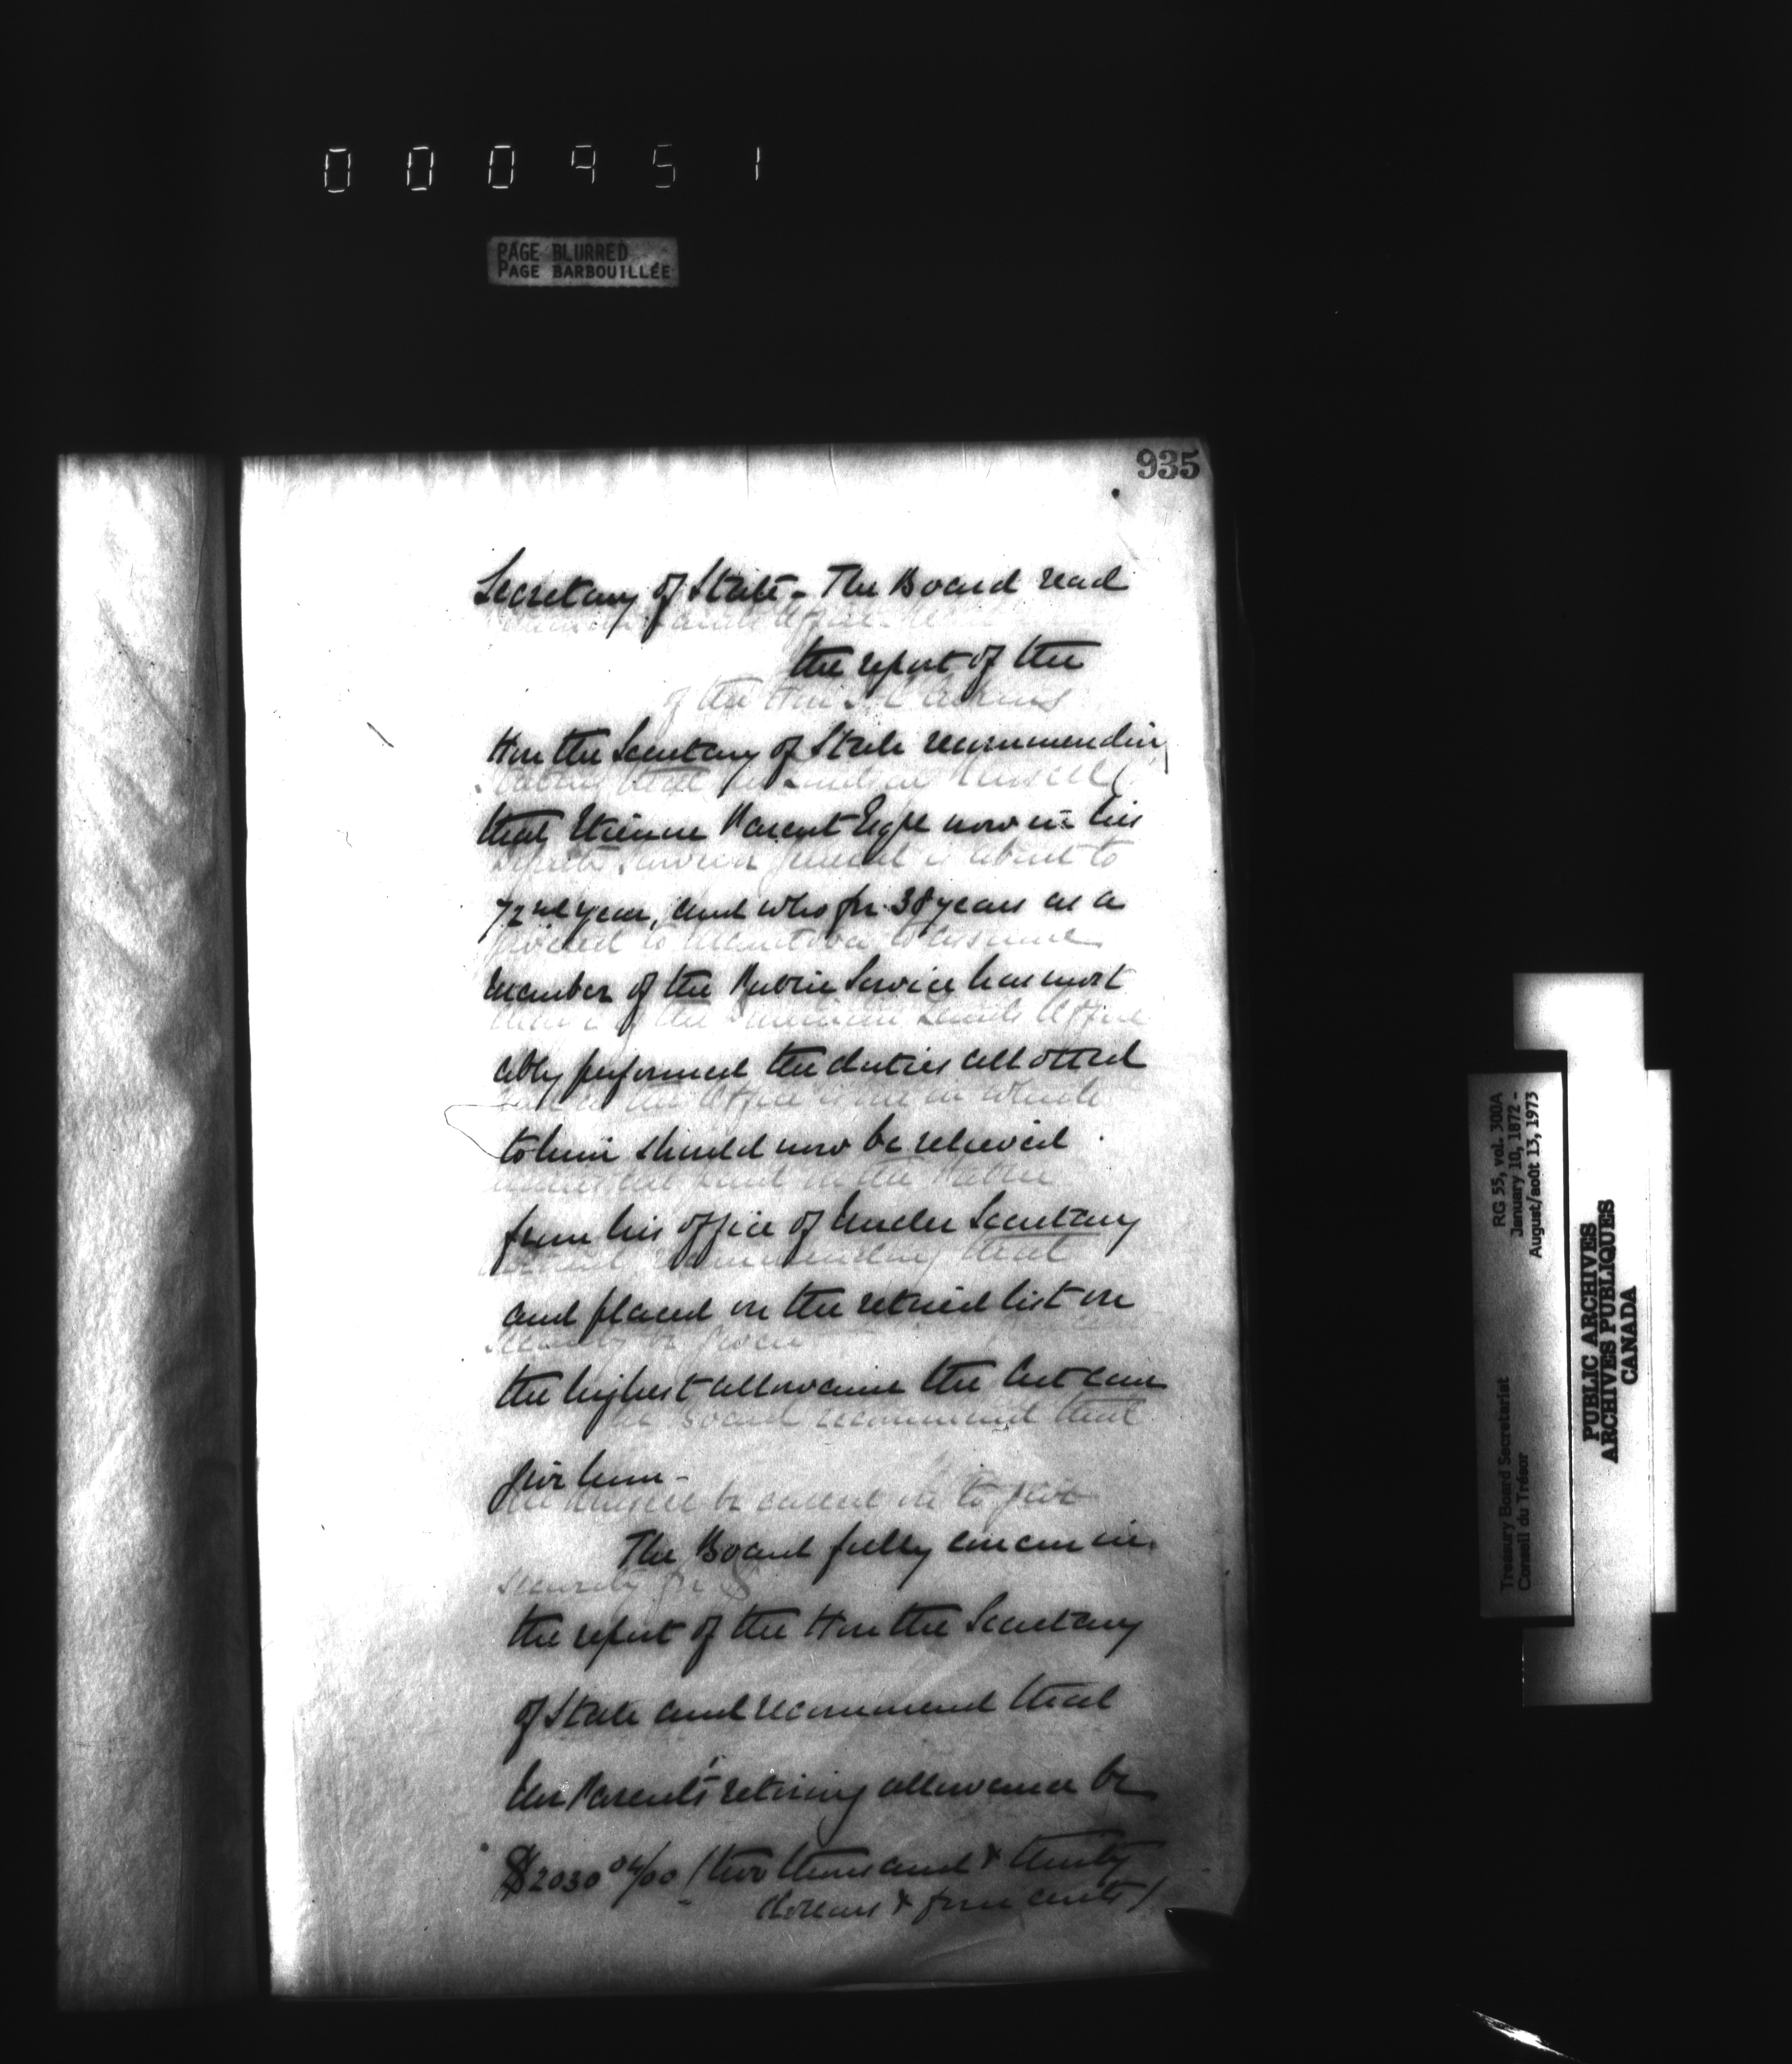 000951
PAGE BLURRED
PAGE BARBOUILLÉE
935
Secretary of State - The Board read
the report of the
Hon the Secretary of State recommending
that Etienne Parent Esqre now in his
72nd year, and who for 38 years as a
member of the Public Service has most
ably performed the duties allotted
to him should now be relieved
from his office of Under Secretary
and placed on the retired list on
the highest allowance the Act can
give him -
The Board fully concur in
the report of the Hon the Secretary
of State and recommend that
Mr Parent's retiring allowance be
$2030 04/00 (two thousand & thirty
dollars & four cents)
of the Hon J. C. Aikins
proceed to Manitoba to assume
recommending that
security be given
The Board recommend that
be called on to give
security for $
RG 55, vol. 300A
January 10, 1872 -
August/août 13, 1973
Treasury Board Secretariat
Conseil du Trésor
PUBLIC ARCHIVES
ARCHIVES PUBLIQUES
CANADA